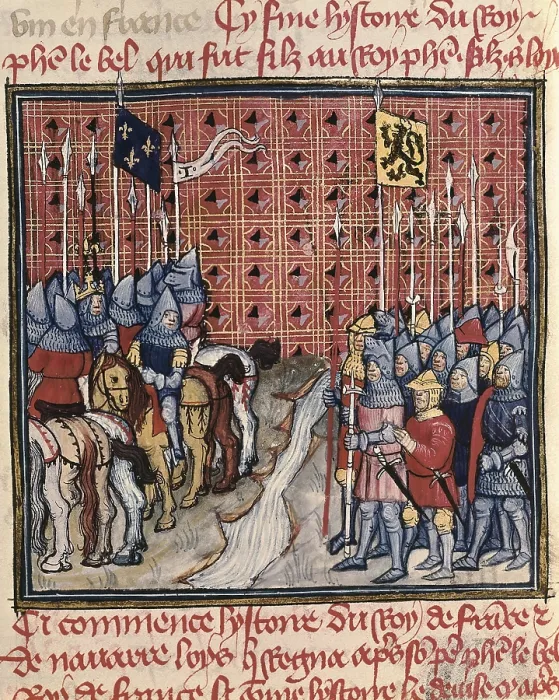 vin en france Cy fine lystoire du Roy
phē le bel qui fut filz au Roy phē filz
Ci commence lystoire du Roy de france et
de nauarre loys q Regna apres so pe phē le bel
Roy de france Et